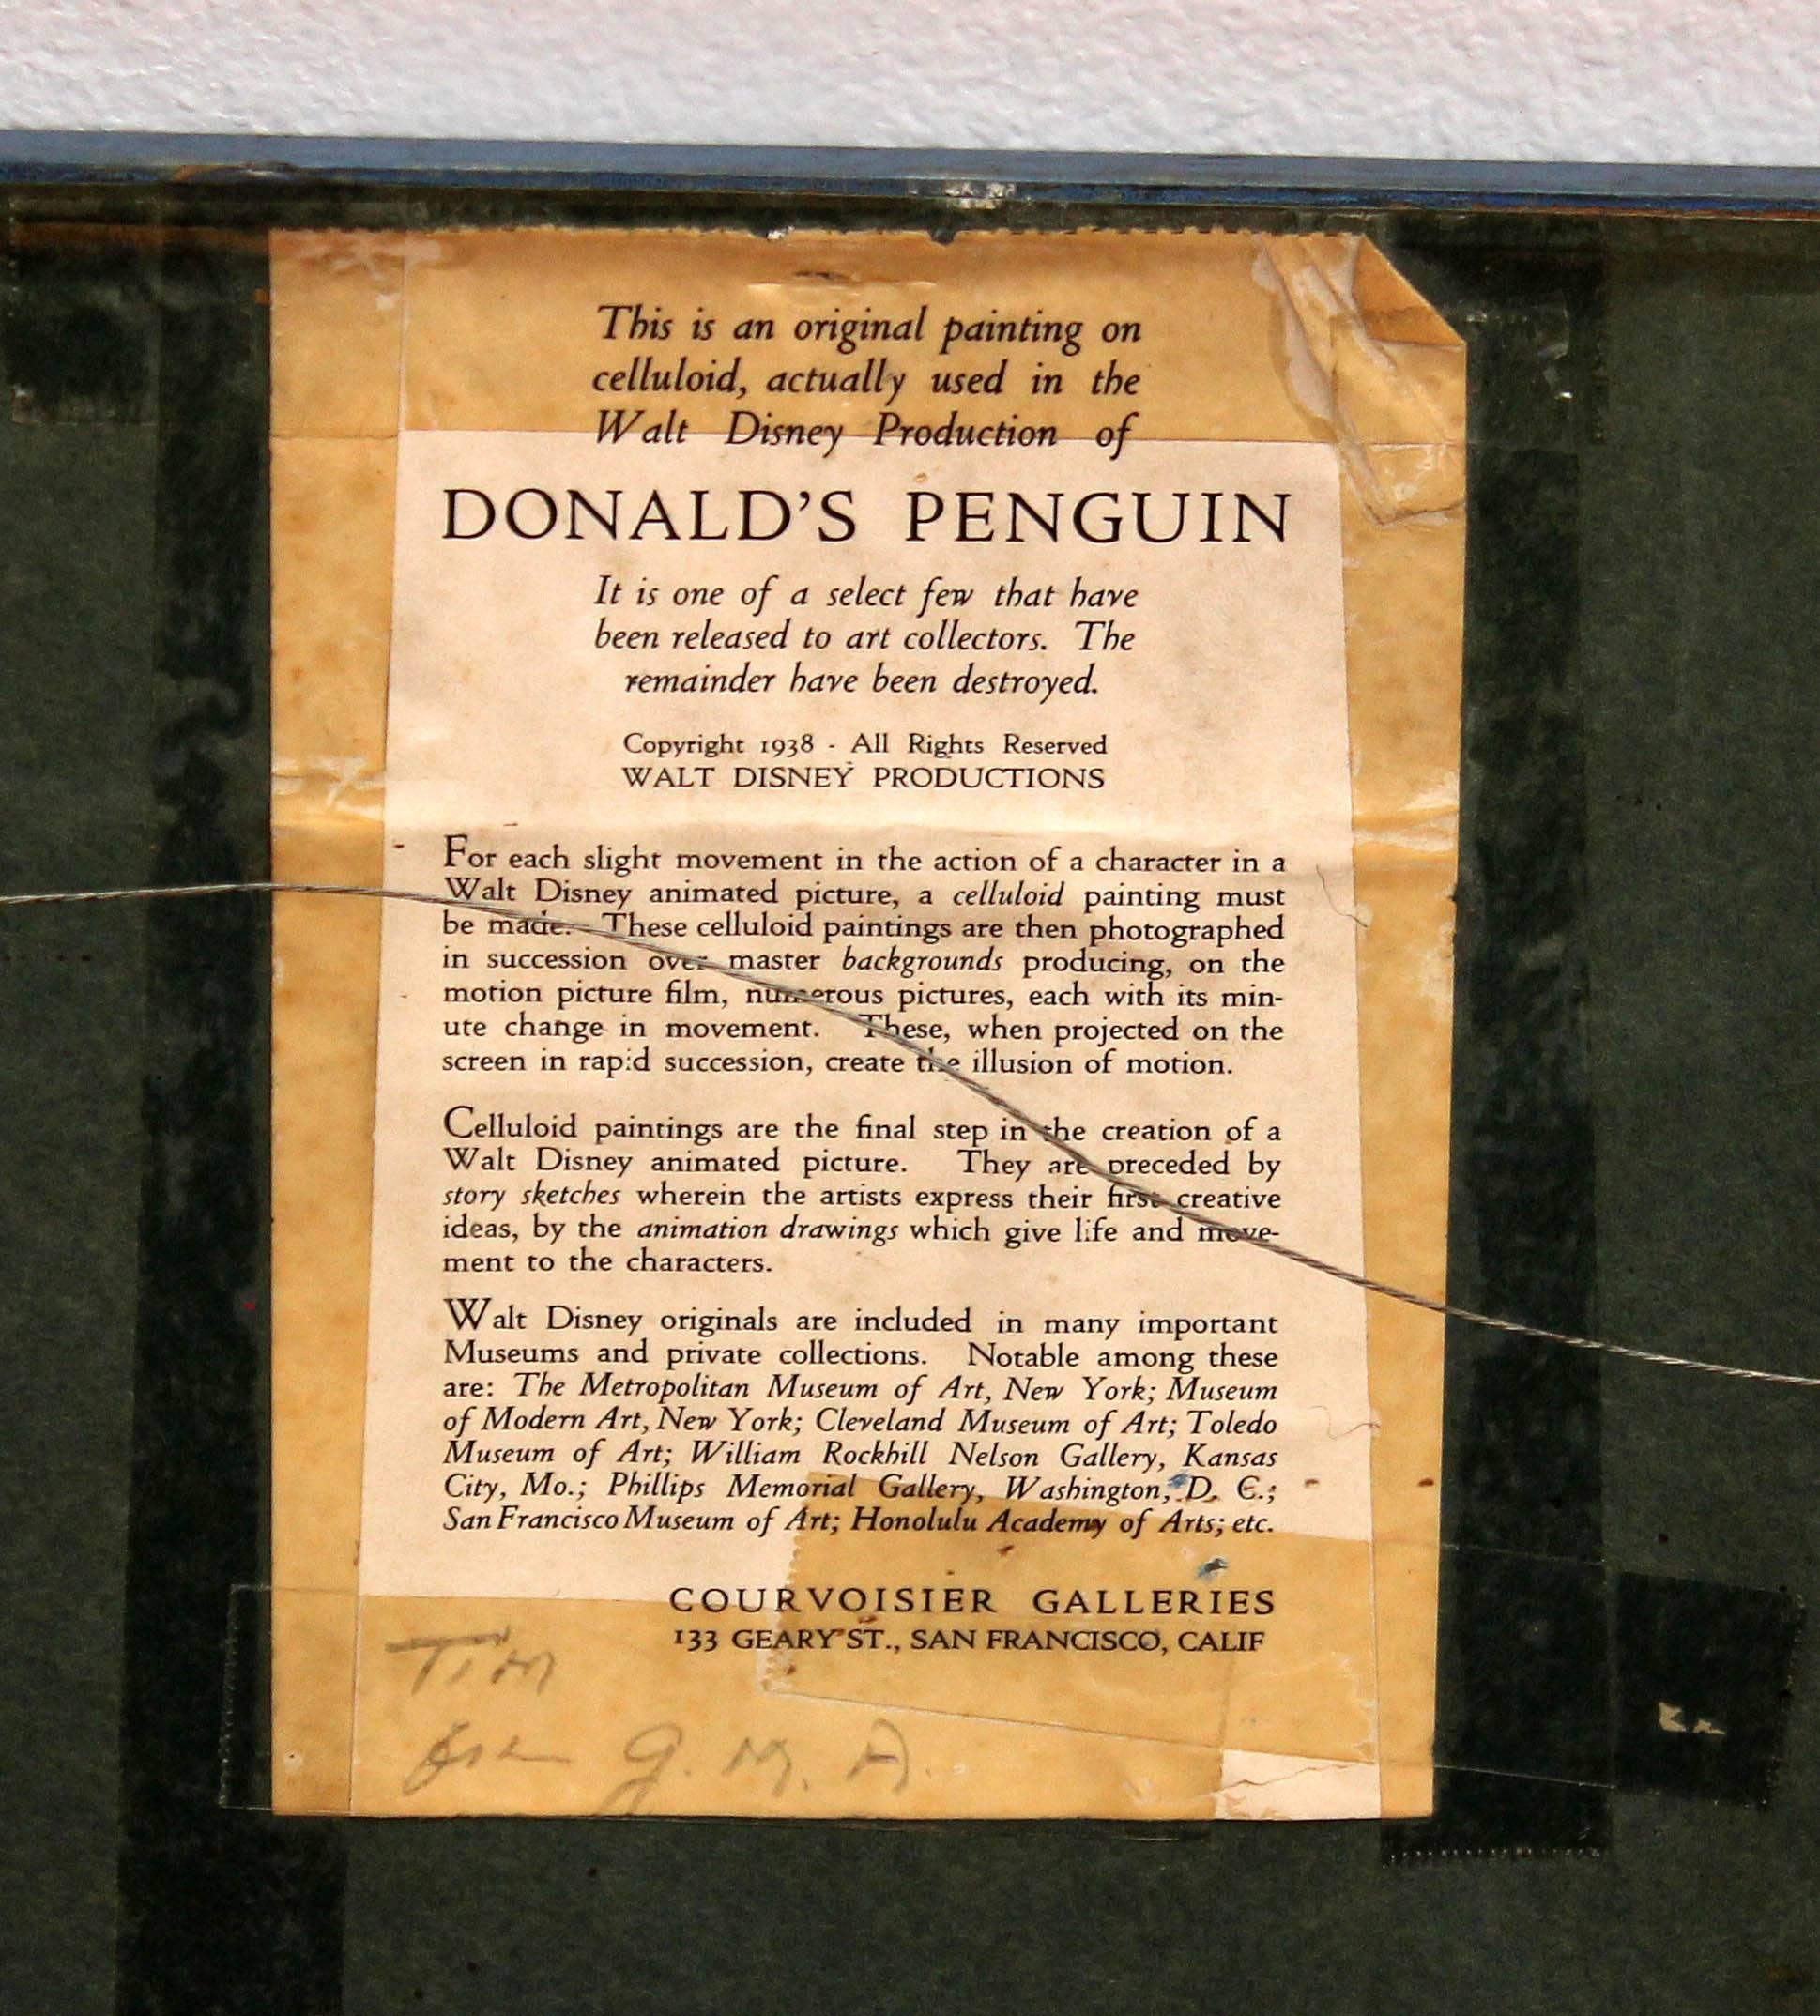 This is an original painting on
celluloid, actually used in the
Walt Disney Production of
DONALD'S PENGUIN
It is one of a select few that have
been released to art collectors. The
remainder have been destroyed.
Copyright 1938 - All Rights Reserved
WALT DISNEY PRODUCTIONS
For each slight movement in the action of a character in a
Walt Disney animated picture, a celluloid painting must
be made. These celluloid paintings are then photographed
in succession over master backgrounds producing, on the
motion picture film, numerous pictures, each with its min-
ute change in movement. These, when projected on the
screen in rapid succession, create the illusion of motion.
Celluloid paintings are the final step in the creation of a
Walt Disney animated picture. They are preceded by
story sketches wherein the artists express their first creative
ideas, by the animation drawings which give life and move-
ment to the characters.
Walt Disney originals are included in many important
Museums and private collections. Notable among these
are: The Metropolitan Museum of Art, New York; Museum
of Modern Art, New York; Cleveland Museum of Art; Toledo
Museum of Art; William Rockhill Nelson Gallery, Kansas
City, Mo.; Phillips Memorial Gallery, Washington, D. C.;
San Francisco Museum of Art; Honolulu Academy of Arts; etc.
COURVOISIER GALLERIES
133 GEARY ST., SAN FRANCISCO, CALIF
Tim
G. M. A.